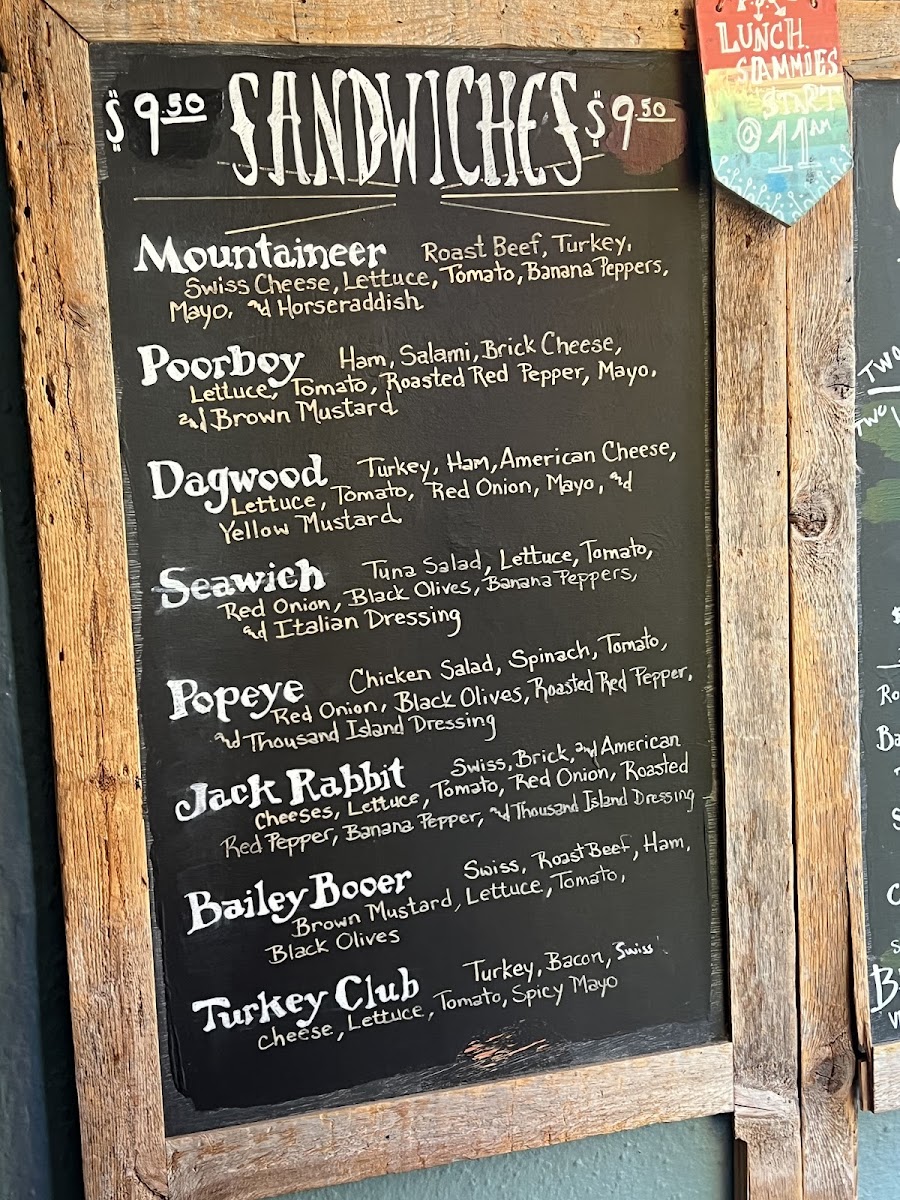 $9.50 SANDWICHES $9.50
LUNCH
SAMMIES
START
@ 11 AM
Mountaineer Roast Beef, Turkey,
Swiss Cheese, Lettuce, Tomato, Banana Peppers,
Mayo, and Horseraddish
Poorboy Ham, Salami, Brick Cheese,
Lettuce, Tomato, Roasted Red Pepper, Mayo,
and Brown Mustard
Dagwood Turkey, Ham, American Cheese,
Lettuce, Tomato, Red Onion, Mayo, and
Yellow Mustard
Seawich Tuna Salad, Lettuce, Tomato,
Red Onion, Black Olives, Banana Peppers,
and Italian Dressing
Popeye Chicken Salad, Spinach, Tomato,
Red Onion, Black Olives, Roasted Red Pepper,
and Thousand Island Dressing
Jack Rabbit Swiss, Brick, and American
Cheeses, Lettuce, Tomato, Red Onion, Roasted
Red Pepper, Banana Pepper, and Thousand Island Dressing
Bailey Booer Swiss, Roast Beef, Ham,
Brown Mustard, Lettuce, Tomato,
Black Olives
Turkey Club Turkey, Bacon, Swiss
cheese, Lettuce, Tomato, Spicy Mayo
TWO
TWO